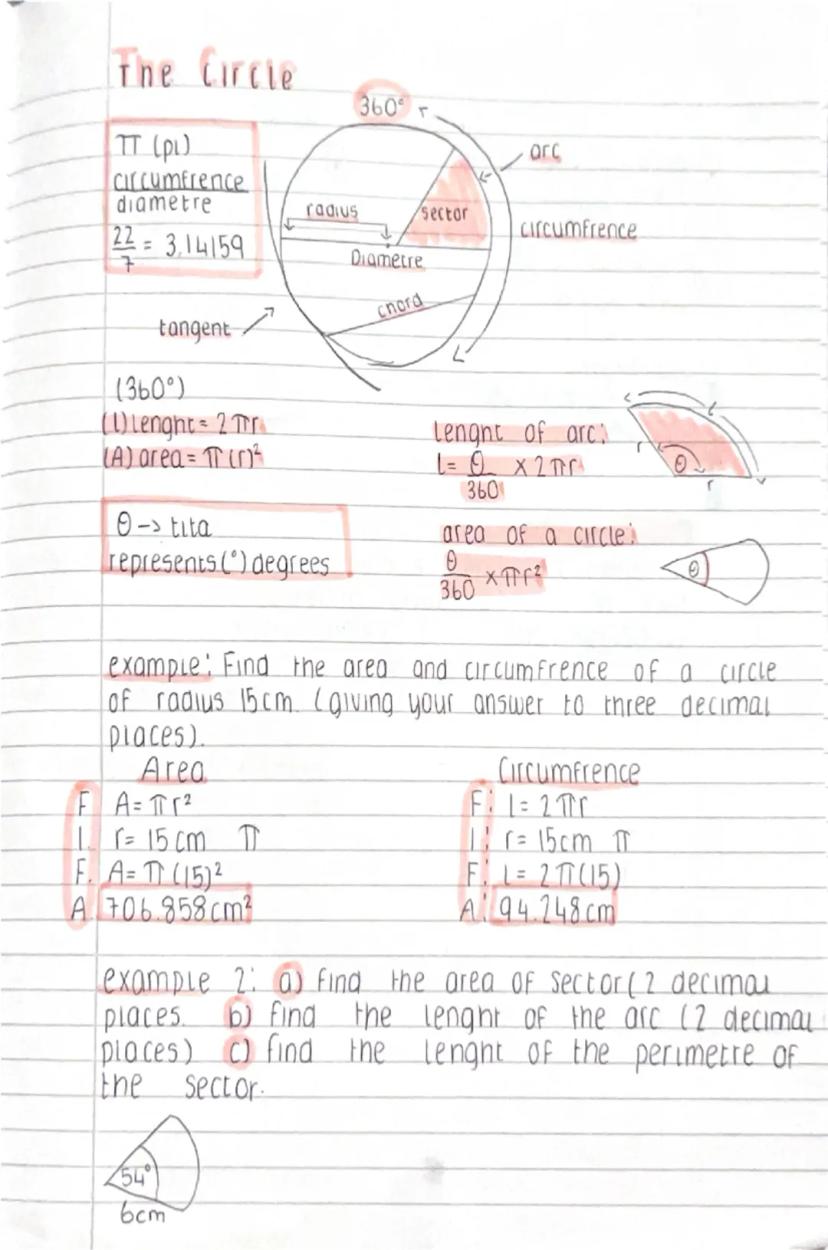 The Circle
360°
π (pi)
circumfrence
diametre
22
7
= 3.14159
arc
radius
sector
circumfrence
Diametre
chord
tangent
(360°)
(l) lenght = 2πr
(A) area = π(r)²
lenght of arc:
l = θ × 2πr
360
l
r
θ
r
θ -> tita
represents (°) degrees
area of a circle:
θ × πr²
360
θ
example: Find the area and circumfrence of a circle
of radius 15cm. (giving your answer to three decimal
places).
Area
F A = πr²
I. r = 15 cm π
F. A = π (15)²
A 706.858cm²
Circumfrence
F: l = 2πr
I: r = 15cm π
F: l = 2π(15)
A: 94.248cm
example 2: a) find the area of sector (2 decimal
places. b) find the lenght of the arc (2 decimal
places) c) find the lenght of the perimetre of
the sector.
54°
6cm